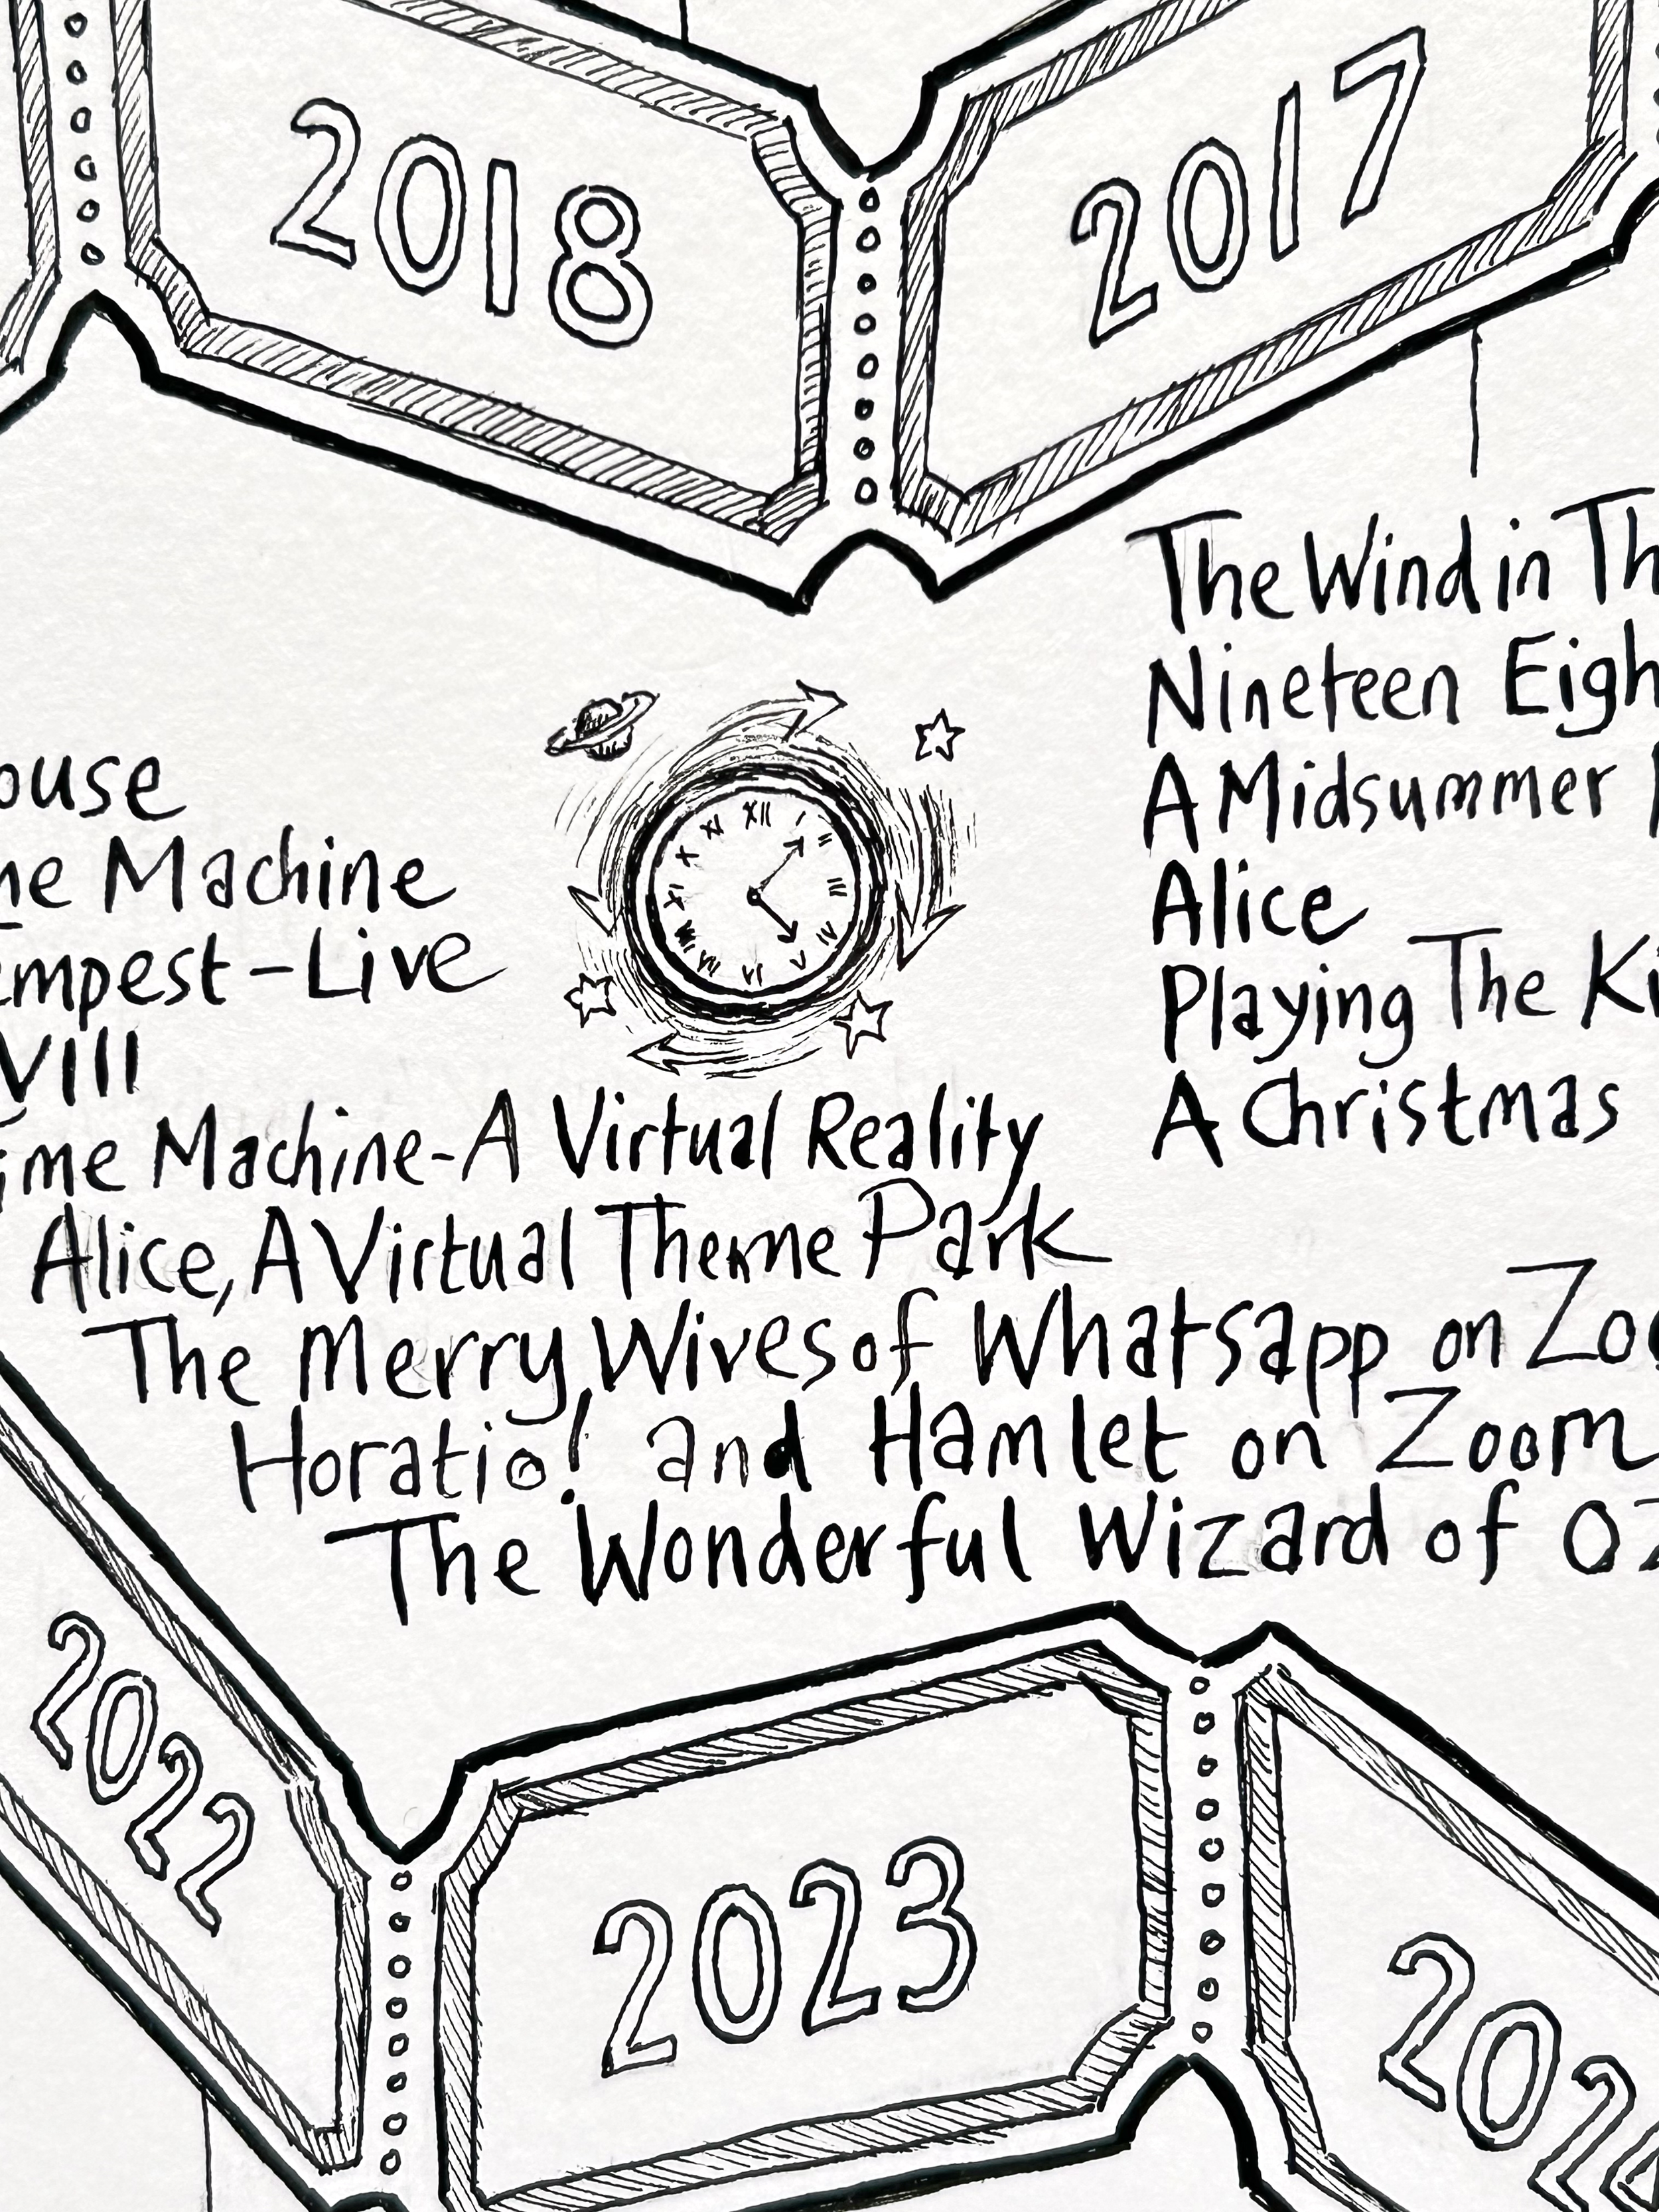 2018
2017
The Wind in Th
Nineteen Eigh
A Midsummer
Alice
Playing The Ki
A Christmas
ouse
me Machine
empest-Live
VIII
XII I II III IV V VI VII VIII IX X XI
ime Machine-A Virtual Reality
Alice, A Virtual Theme Park
The Merry Wives of Whatsapp on Zoo
Horatio! and Hamlet on Zoom
The Wonderful Wizard of Oz
2022
2023
2024